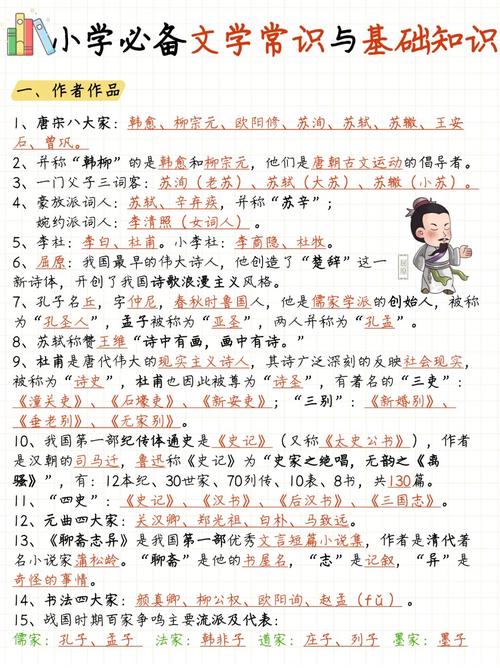 小学必备文学常识与基础知识
一、作者作品
1、唐宋八大家：韩愈、柳宗元、欧阳修、苏洵、苏轼、苏辙、王安
石、曾巩。
2、并称“韩柳”的是韩愈和柳宗元，他们是唐朝古文运动的倡导者。
3、一门父子三词客：苏洵（老苏）、苏轼（大苏）、苏辙（小苏）。
4、豪放派词人：苏轼、辛弃疾，并称“苏辛”；
婉约派词人：李清照（女词人）。
5、李杜：李白、杜甫。小李杜：李商隐、杜牧。
6、屈原：我国最早的伟大诗人，他创造了“楚辞”这一
新诗体，开创了我国诗歌浪漫主义风格。
屈原
7、孔子名丘，字仲尼，春秋时鲁国人，他是儒家学派的创始人，被称
为“孔圣人”，孟子被称为“亚圣”，两人并称为“孔孟”。
8、苏轼称赞王维“诗中有画，画中有诗。”
9、杜甫是唐代伟大的现实主义诗人，其诗广泛深刻的反映社会现实，
被称为“诗史”，杜甫也因此被尊为“诗圣”，有著名的“三吏”：
《潼关吏》、《石壕吏》、《新安吏》；“三别”：《新婚别》、
《垂老别》、《无家别》。
10、我国第一部纪传体通史是《史记》（又称《太史公书》），作者
是汉朝的司马迁，鲁迅称《史记》为“史家之绝唱，无韵之《离
骚》”，有：12本纪、30世家、70列传、10表、8书，共130篇。
11、“四史”：《史记》、《汉书》、《后汉书》、《三国志》。
12、元曲四大家：关汉卿、郑光祖、白朴、马致远。
13、《聊斋志异》是我国第一部优秀文言短篇小说集，作者是清代著
名小说家蒲松龄。“聊斋”是他的书屋名，“志”是记叙，“异”是
奇怪的事情。
14、书法四大家：颜真卿、柳公权、欧阳询、赵孟（fǔ）。
15、战国时期百家争鸣主要流派及代表：
儒家：孔子、孟子 法家：韩非子 道家：庄子、列子 墨家：墨子